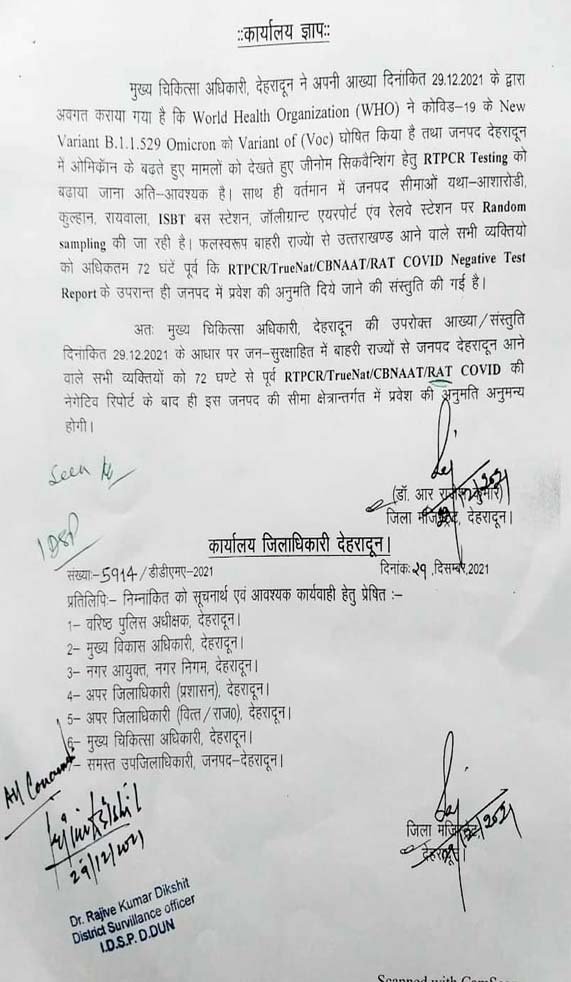 ::कार्यालय ज्ञाप::
मुख्य चिकित्सा अधिकारी, देहरादून ने अपनी आख्या दिनांकित 29.12.2021 के द्वारा
अवगत कराया गया है कि World Health Organization (WHO) ने कोविड-19 के New
Variant B.1.1.529 Omicron को Variant of (Voc) घोषित किया है तथा जनपद देहरादून
में ओमिकॉन के बढते हुए मामलों को देखते हुए जीनोम सिकवैन्शिंग हेतु RTPCR Testing को
बढाया जाना अति-आवश्यक है। साथ ही वर्तमान में जनपद सीमाओं यथा-आशारोडी,
कुल्हान, रायवाला, ISBT बस स्टेशन, जॉलीग्रान्ट एयरपोर्ट एंव रेलवे स्टेशन पर Random
sampling की जा रही है। फलस्वरूप बाहरी राज्यों से उत्तराखण्ड आने वाले सभी व्यक्तियो
को अधिकतम 72 घंटें पूर्व कि RTPCR/TrueNat/CBNAAT/RAT COVID Negative Test
Report के उपरान्त ही जनपद में प्रवेश की अनुमति दिये जाने की संस्तुति की गई है।
अतः मुख्य चिकित्सा अधिकारी, देहरादून की उपरोक्त आख्या/संस्तुति
दिनांकित 29.12.2021 के आधार पर जन-सुरक्षाहित में बाहरी राज्यों से जनपद देहरादून आने
वाले सभी व्यक्तियों को 72 घण्टे से पूर्व RTPCR/TrueNat/CBNAAT/RAT COVID की
नेगेटिव रिपोर्ट के बाद ही इस जनपद की सीमा क्षेत्रान्तर्गत में प्रवेश की अनुमति अनुमन्य
होगी।
Seen
IDSP
(डॉ. आर राजेश कुमार)
जिला मजिस्ट्रेट, देहरादून।
कार्यालय जिलाधिकारी देहरादून।
संख्याः-5914/डीडीएमए-2021 दिनांकः 29, दिसम्बर, 2021
प्रतिलिपिः- निम्नांकित को सूचनार्थ एवं आवश्यक कार्यवाही हेतु प्रेषित :-
1- वरिष्ठ पुलिस अधीक्षक, देहरादून।
2- मुख्य विकास अधिकारी, देहरादून।
3- नगर आयुक्त, नगर निगम, देहरादून।
4- अपर जिलाधिकारी (प्रशासन), देहरादून।
5- अपर जिलाधिकारी (वित्त/राज0), देहरादून।
6- मुख्य चिकित्सा अधिकारी, देहरादून।
7- समस्त उपजिलाधिकारी, जनपद-देहरादून।
जिला मजिस्ट्रेट,
देहरादून।
All
29/12/2021
Dr. Rajive Kumar Dikshit
District Survillance officer
I.D.S.P. D.DUN
Scanned with